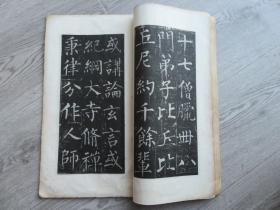 十七僧臘卌八
門弟子比丘比
丘尼約千餘輩
或講論玄言或
紀綱大寺修禪
秉律分作人師